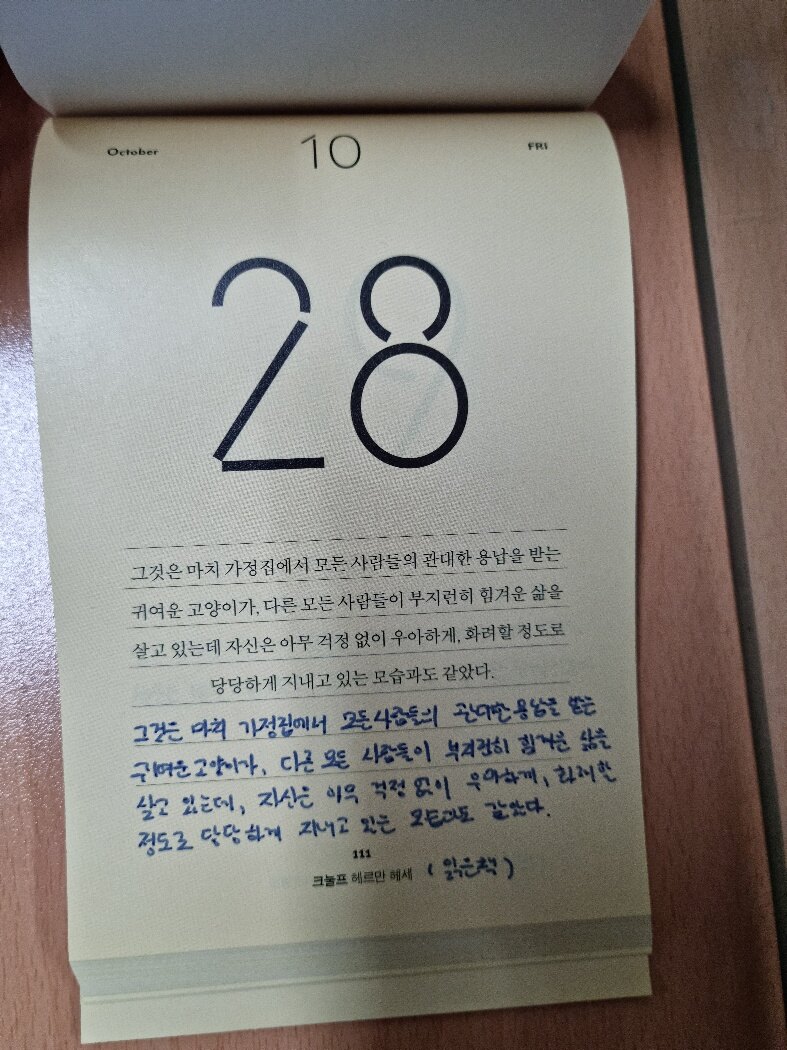 October 10 FRI
28
그것은 마치 가정집에서 모든 사람들의 관대한 용납을 받는
귀여운 고양이가, 다른 모든 사람들이 부지런히 힘겨운 삶을
살고 있는데 자신은 아무 걱정 없이 우아하게, 화려할 정도로
당당하게 지내고 있는 모습과도 같았다.
그것은 마치 가정집에서 모든사람들의 관대한용납을 받는
귀여운고양이가, 다른 모든 사람들이 부지런히 힘겨운 삶을
살고 있는데, 자신은 아무 걱정 없이 우아하게, 화려할
정도로 당당하게 지내고 있는 모습과도 같았다.
111
크눌프 헤르만 헤세 (읽은책)